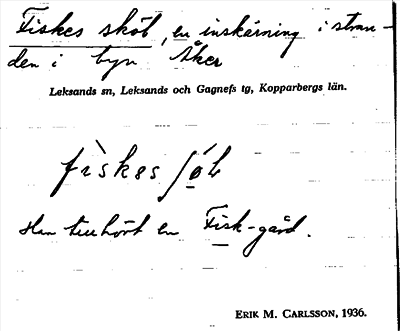 Fiskes sköt, en inskärning i stran-
den i byn Åker
Leksands sn, Leksands och Gagnefs tg, Kopparbergs län.
fìskes
Har tillhört en Fisk-gård.
ERIK M. CARLSSON, 1936.